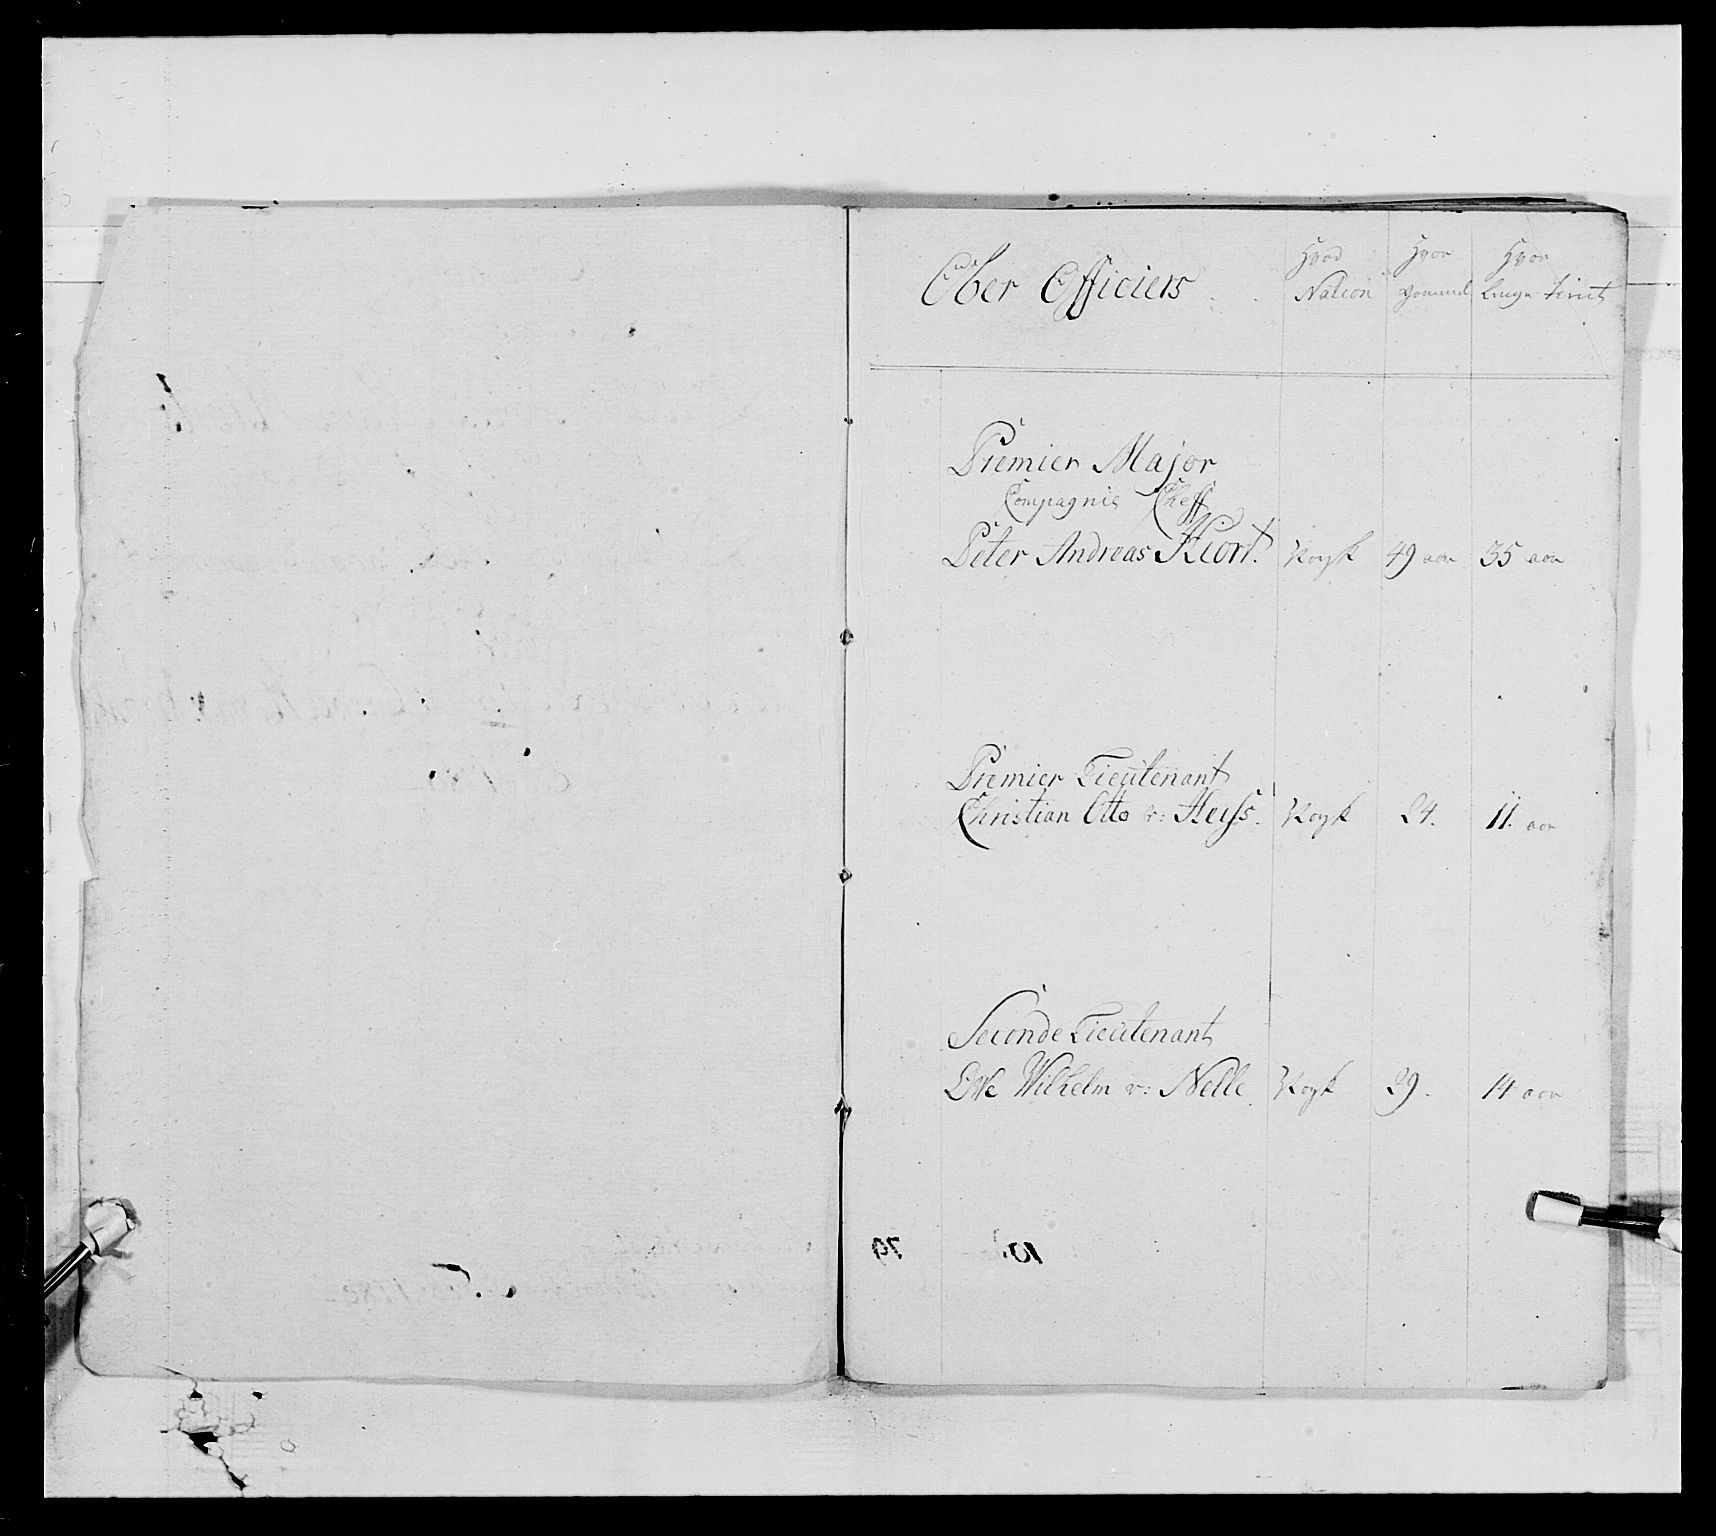 Ober Officiers
Hvad Nation
Hvor Gammel
Hvor Lenge tient
Premier Major
Compagnie Cheff
Peter Andreas Hiort. Norsk 49 aar 35 aar
Premier Lieutenant
Christian Otto v: Heiss. Norsk 24. 11. aar
Seconde Lieutenant
Wilhelm v: Nelle Norsk 29. 14 aar